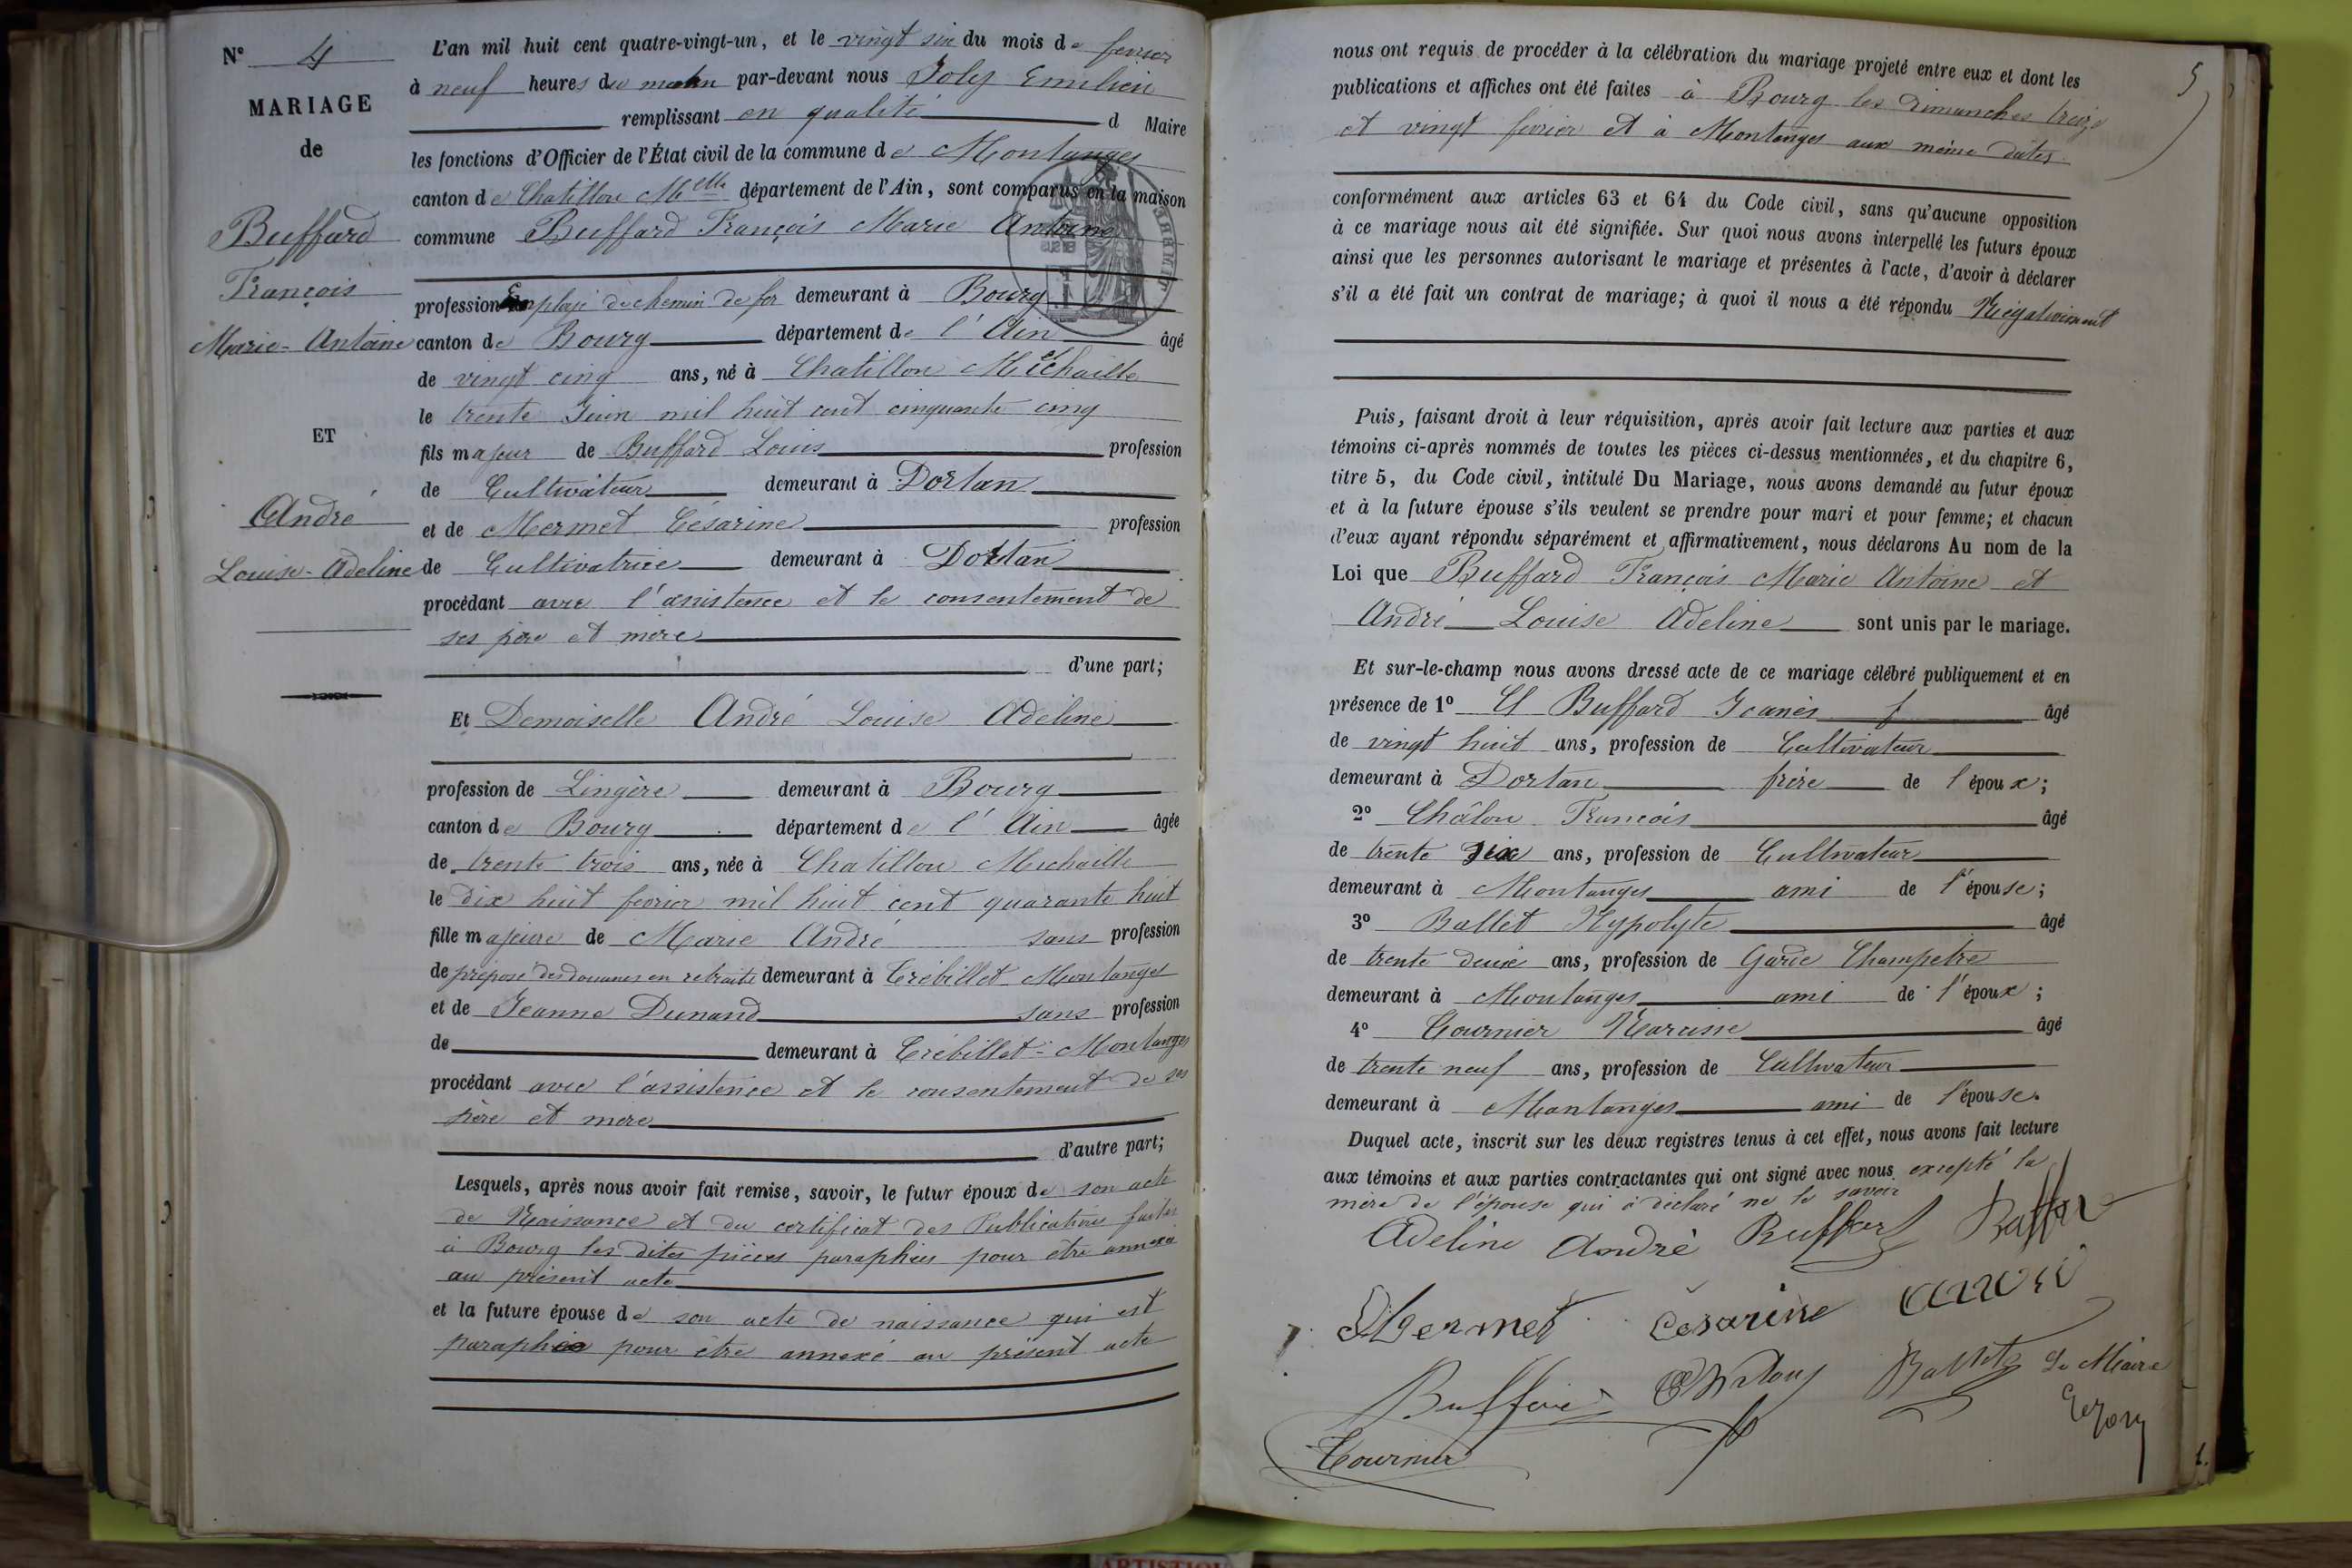 N° 4
MARIAGE
de
Buffard
François
Marie-Antoine
ET
André
Louise-Adeline
L'an mil huit cent quatre-vingt-un, et le vingt six du mois de fevrier
à neuf heures du matin par-devant nous Joly Emilien
remplissant en qualité d Maire
les fonctions d'Officier de l'État civil de la commune de Montanges
canton de Chatillon Melle département de l'Ain, sont comparus en la maison
commune Buffard François Marie Antoine
profession Employé de chemin de fer demeurant à Bourg
canton de Bourg département de l'Ain âgé
de vingt cinq ans, né à Chatillon Michaille
le trente Juin mil huit cent cinquante cinq
fils majeur de Buffard Louis profession
de Cultivateur demeurant à Dortan
et de Mermet Césarine profession
de Cultivatrice demeurant à Dortan
procédant avec l'assistence et le consentement de
ses père et mère
d'une part;
Et Demoiselle André Louise Adeline
profession de Lingère demeurant à Bourg
canton de Bourg département de l'Ain âgée
de trente trois ans, née à Chatillon Michaille
le dix huit fevrier mil huit cent quarante huit
fille majeure de Marie André sans profession
de préposé des douanes en retraite demeurant à Trébillet Montanges
et de Jeanne Dunand sans profession
de demeurant à Trébillet-Montanges
procédant avec l'assistence et le consentement de ses
père et mere
d'autre part;
Lesquels, après nous avoir fait remise, savoir, le futur époux de son acte
de Naissance et du certificat des Publications faites
à Bourg les dites pièces paraphées pour être annexé
au présent acte
et la future épouse de son acte de naissance qui est
paraphée pour être annexé au présent acte
5
nous ont requis de procéder à la célébration du mariage projeté entre eux et dont les
publications et affiches ont été faites à Bourg les dimanches treize
et vingt fevrier et à Montanges aux même dates
conformément aux articles 63 et 64 du Code civil, sans qu'aucune opposition
à ce mariage nous ait été signifiée. Sur quoi nous avons interpellé les futurs époux
ainsi que les personnes autorisant le mariage et présentes à l'acte, d'avoir à déclarer
s'il a été fait un contrat de mariage; à quoi il nous a été répondu Négativement
Puis, faisant droit à leur réquisition, après avoir fait lecture aux parties et aux
témoins ci-après nommés de toutes les pièces ci-dessus mentionnées, et du chapitre 6,
titre 5, du Code civil, intitulé Du Mariage, nous avons demandé au futur époux
et à la future épouse s'ils veulent se prendre pour mari et pour femme; et chacun
d'eux ayant répondu séparément et affirmativement, nous déclarons Au nom de la
Loi que Buffard François Marie Antoine et
André Louise Adeline sont unis par le mariage.
Et sur-le-champ nous avons dressé acte de ce mariage célébré publiquement et en
présence de 1° Buffard Joanès âgé
de vingt huit ans, profession de Cultivateur
demeurant à Dortan frère de l'époux;
2° Châlon François âgé
de trente six ans, profession de Cultivateur
demeurant à Montanges ami de l'épouse;
3° Ballet Hypolyte âgé
de trente deux ans, profession de Garde Champetre
demeurant à Montanges ami de l'époux;
4° Tournier Narcisse âgé
de trente neuf ans, profession de Cultivateur
demeurant à Montanges ami de l'épouse.
Duquel acte, inscrit sur les deux registres tenus à cet effet, nous avons fait lecture
aux témoins et aux parties contractantes qui ont signé avec nous excepté la
mère de l'épouse qui à déclaré ne le savoir
Adeline André Buffard Buffard
Mermet Césarine André
Ballet Le Maire
E Joly
Tournier